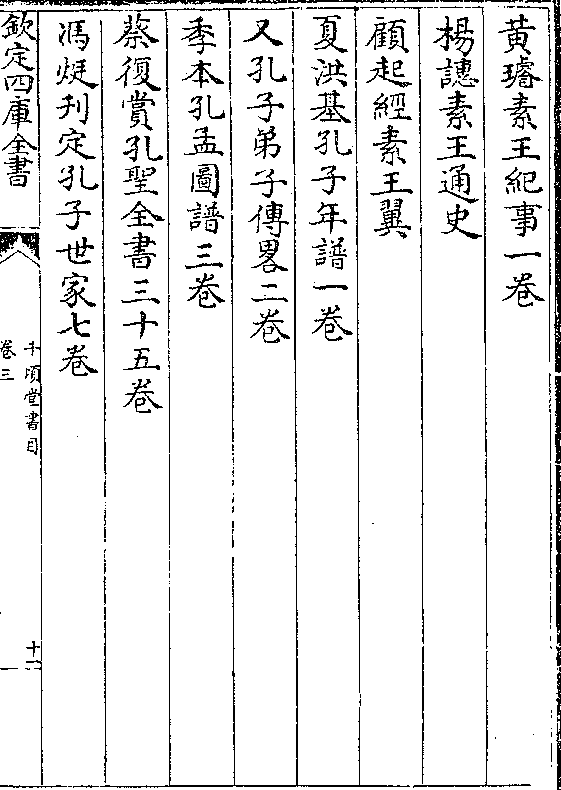 黄璿素王紀事一卷
楊譓素王通史
顧起經素王翼
夏洪基孔子年譜一卷
又孔子弟子傳畧二卷
季本孔孟圖譜三卷
蔡復賞孔聖全書三十五卷
馮烶刋定孔子世家七卷
欽定四庫全書
千頃堂書目
卷三